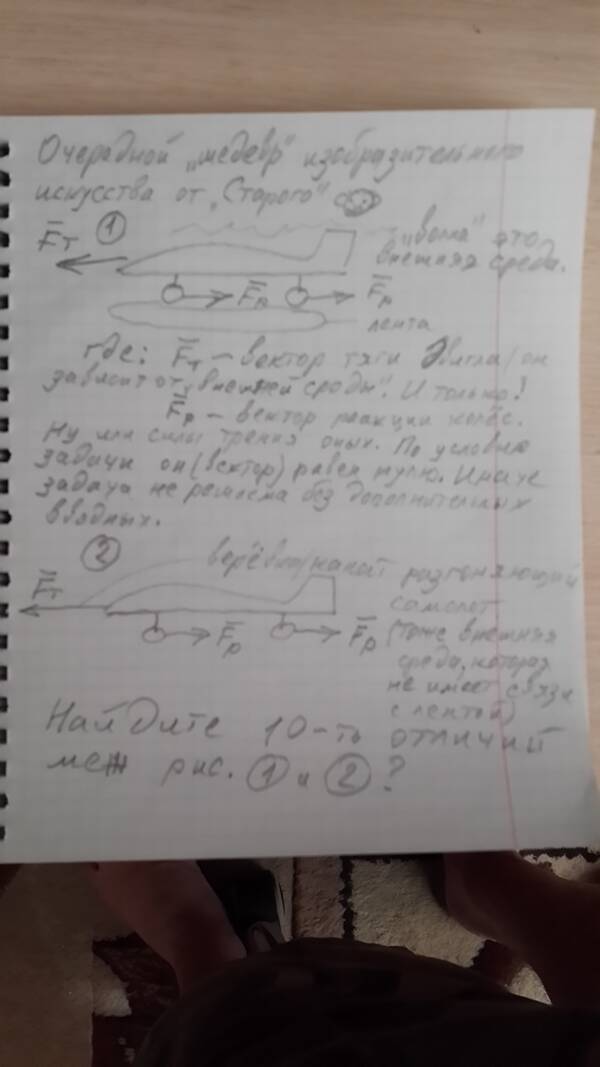 Очередной „шедевр" изобразительного
искусства от „Старого"
F̅т ①
„волна" это
внешняя среда.
F̅р F̅р
лента
где: F̅т – вектор тяги движка/он
зависит от „внешней среды". И только!
F̅р – вектор реакции колёс.
Ну или силы трения оных. По условию
задачи он (вектор) равен нулю. Иначе
задача не решаема без дополнительных
вводных.
② верёвка/канат разгоняющий
F̅т самолот
F̅р F̅р (тоже внешняя
среда, которая
не имеет связи
с лентой)
Найдите 10-ть отличий
меж рис. ① и ②?